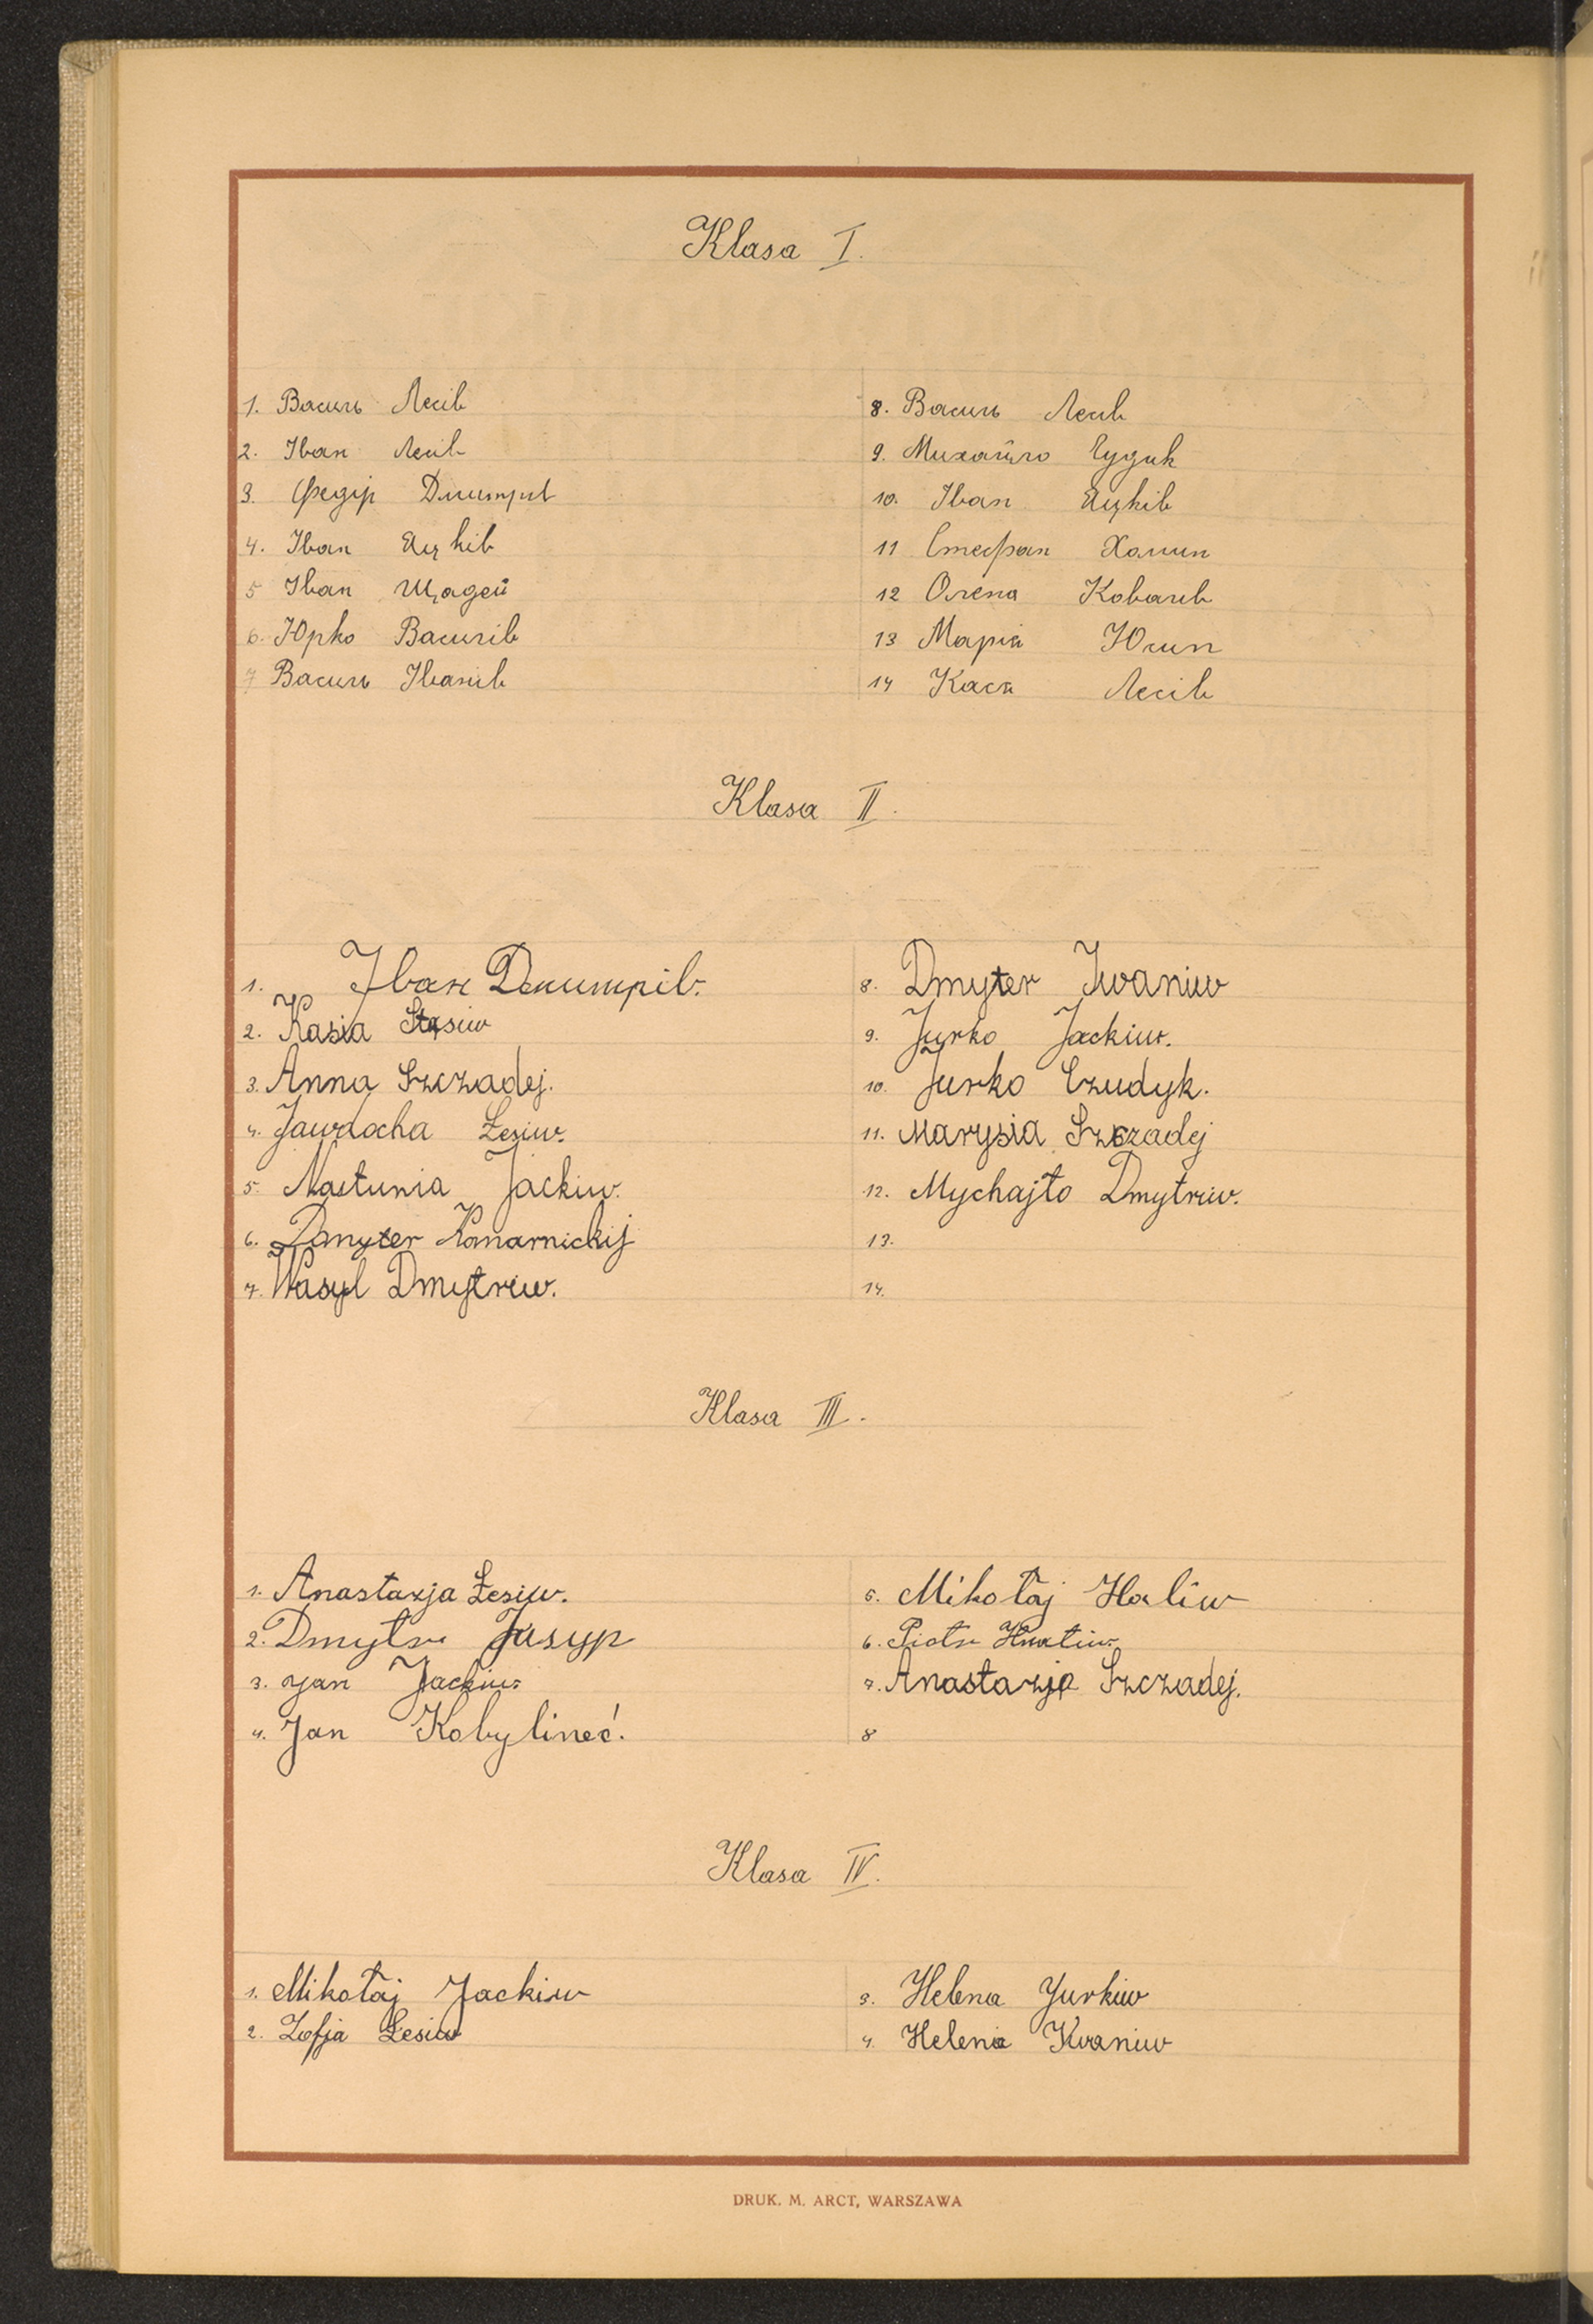 Klasa I.
1. Василь Лесів
2. Іван Лесів
3. Федір Дмитрів
4. Іван Яцків
5 Іван Щадей
6. Юрко Василів
7 Василь Іванів
8. Василь Лесів
9. Михайло Чудик
10. Іван Яцків
11 Стефан Хомин
12 Олена Ковалів
13 Марія Юсип
14 Кася Лесів
Klasa II.
1. Іван Дмитрів.
2. Kasia Stasiw
3. Anna Szczadej.
4. Jawdocha Łesiw.
5. Nastunia Jackiw.
6. Dmyter Komarnickij
7. Wasyl Dmytriw.
8. Dmyter Iwaniw
9. Jurko Jackiw.
10. Jurko Czudyk.
11. Marysia Szczadej
12. Mychajło Dmytriw.
13.
14.
Klasa III.
1. Anastazja Łesiw.
2. Dmytr Jusyp
3. Jan Jackiw
4. Jan Kobylineć.
5. Mikołaj Haliw
6. Piotr Hnatiw
7. Anastazja Szczadej.
8
Klasa IV.
1. Mikołaj Jackiw
2. Zofja Łesiw
3. Helena Yurkiw
4. Helena Iwaniw
DRUK. M. ARCT, WARSZAWA